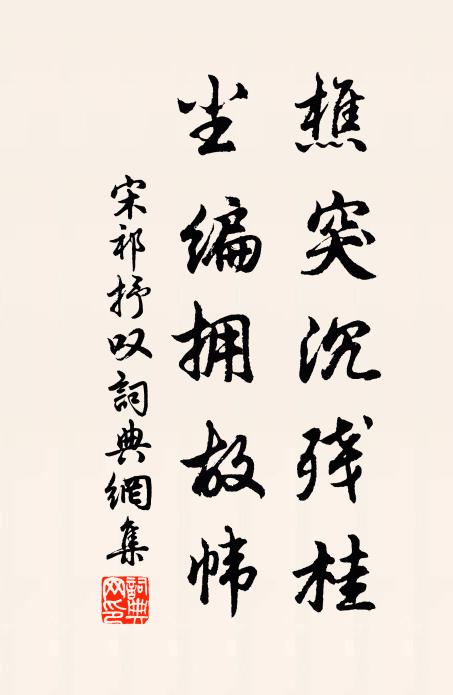 樵突沉残桂
尘编拥故帏
宋祁抒叹詞典網集
詞典网印